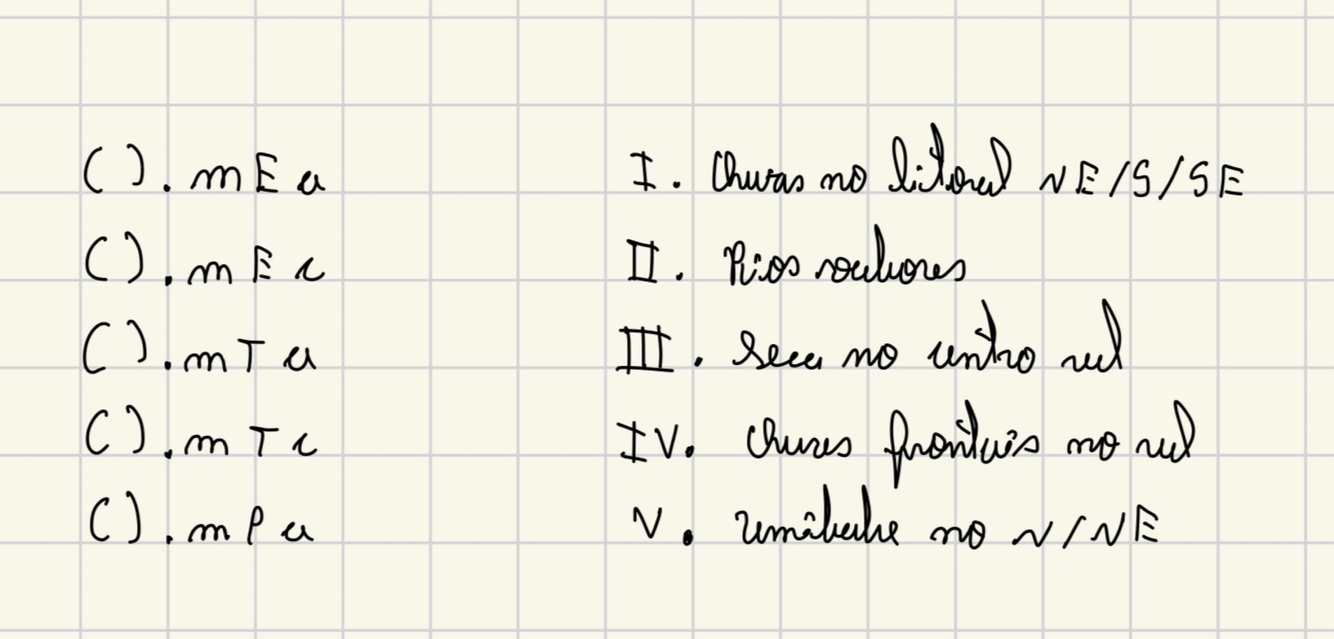 ( ). mEa I. Chuvas no litoral NE/S/SE
( ). mEc II. Rios voadores
( ). mTa III. Seca no centro sul
( ). mTc IV. chuvas frontais no sul
( ). mPa V. umidade no N/NE